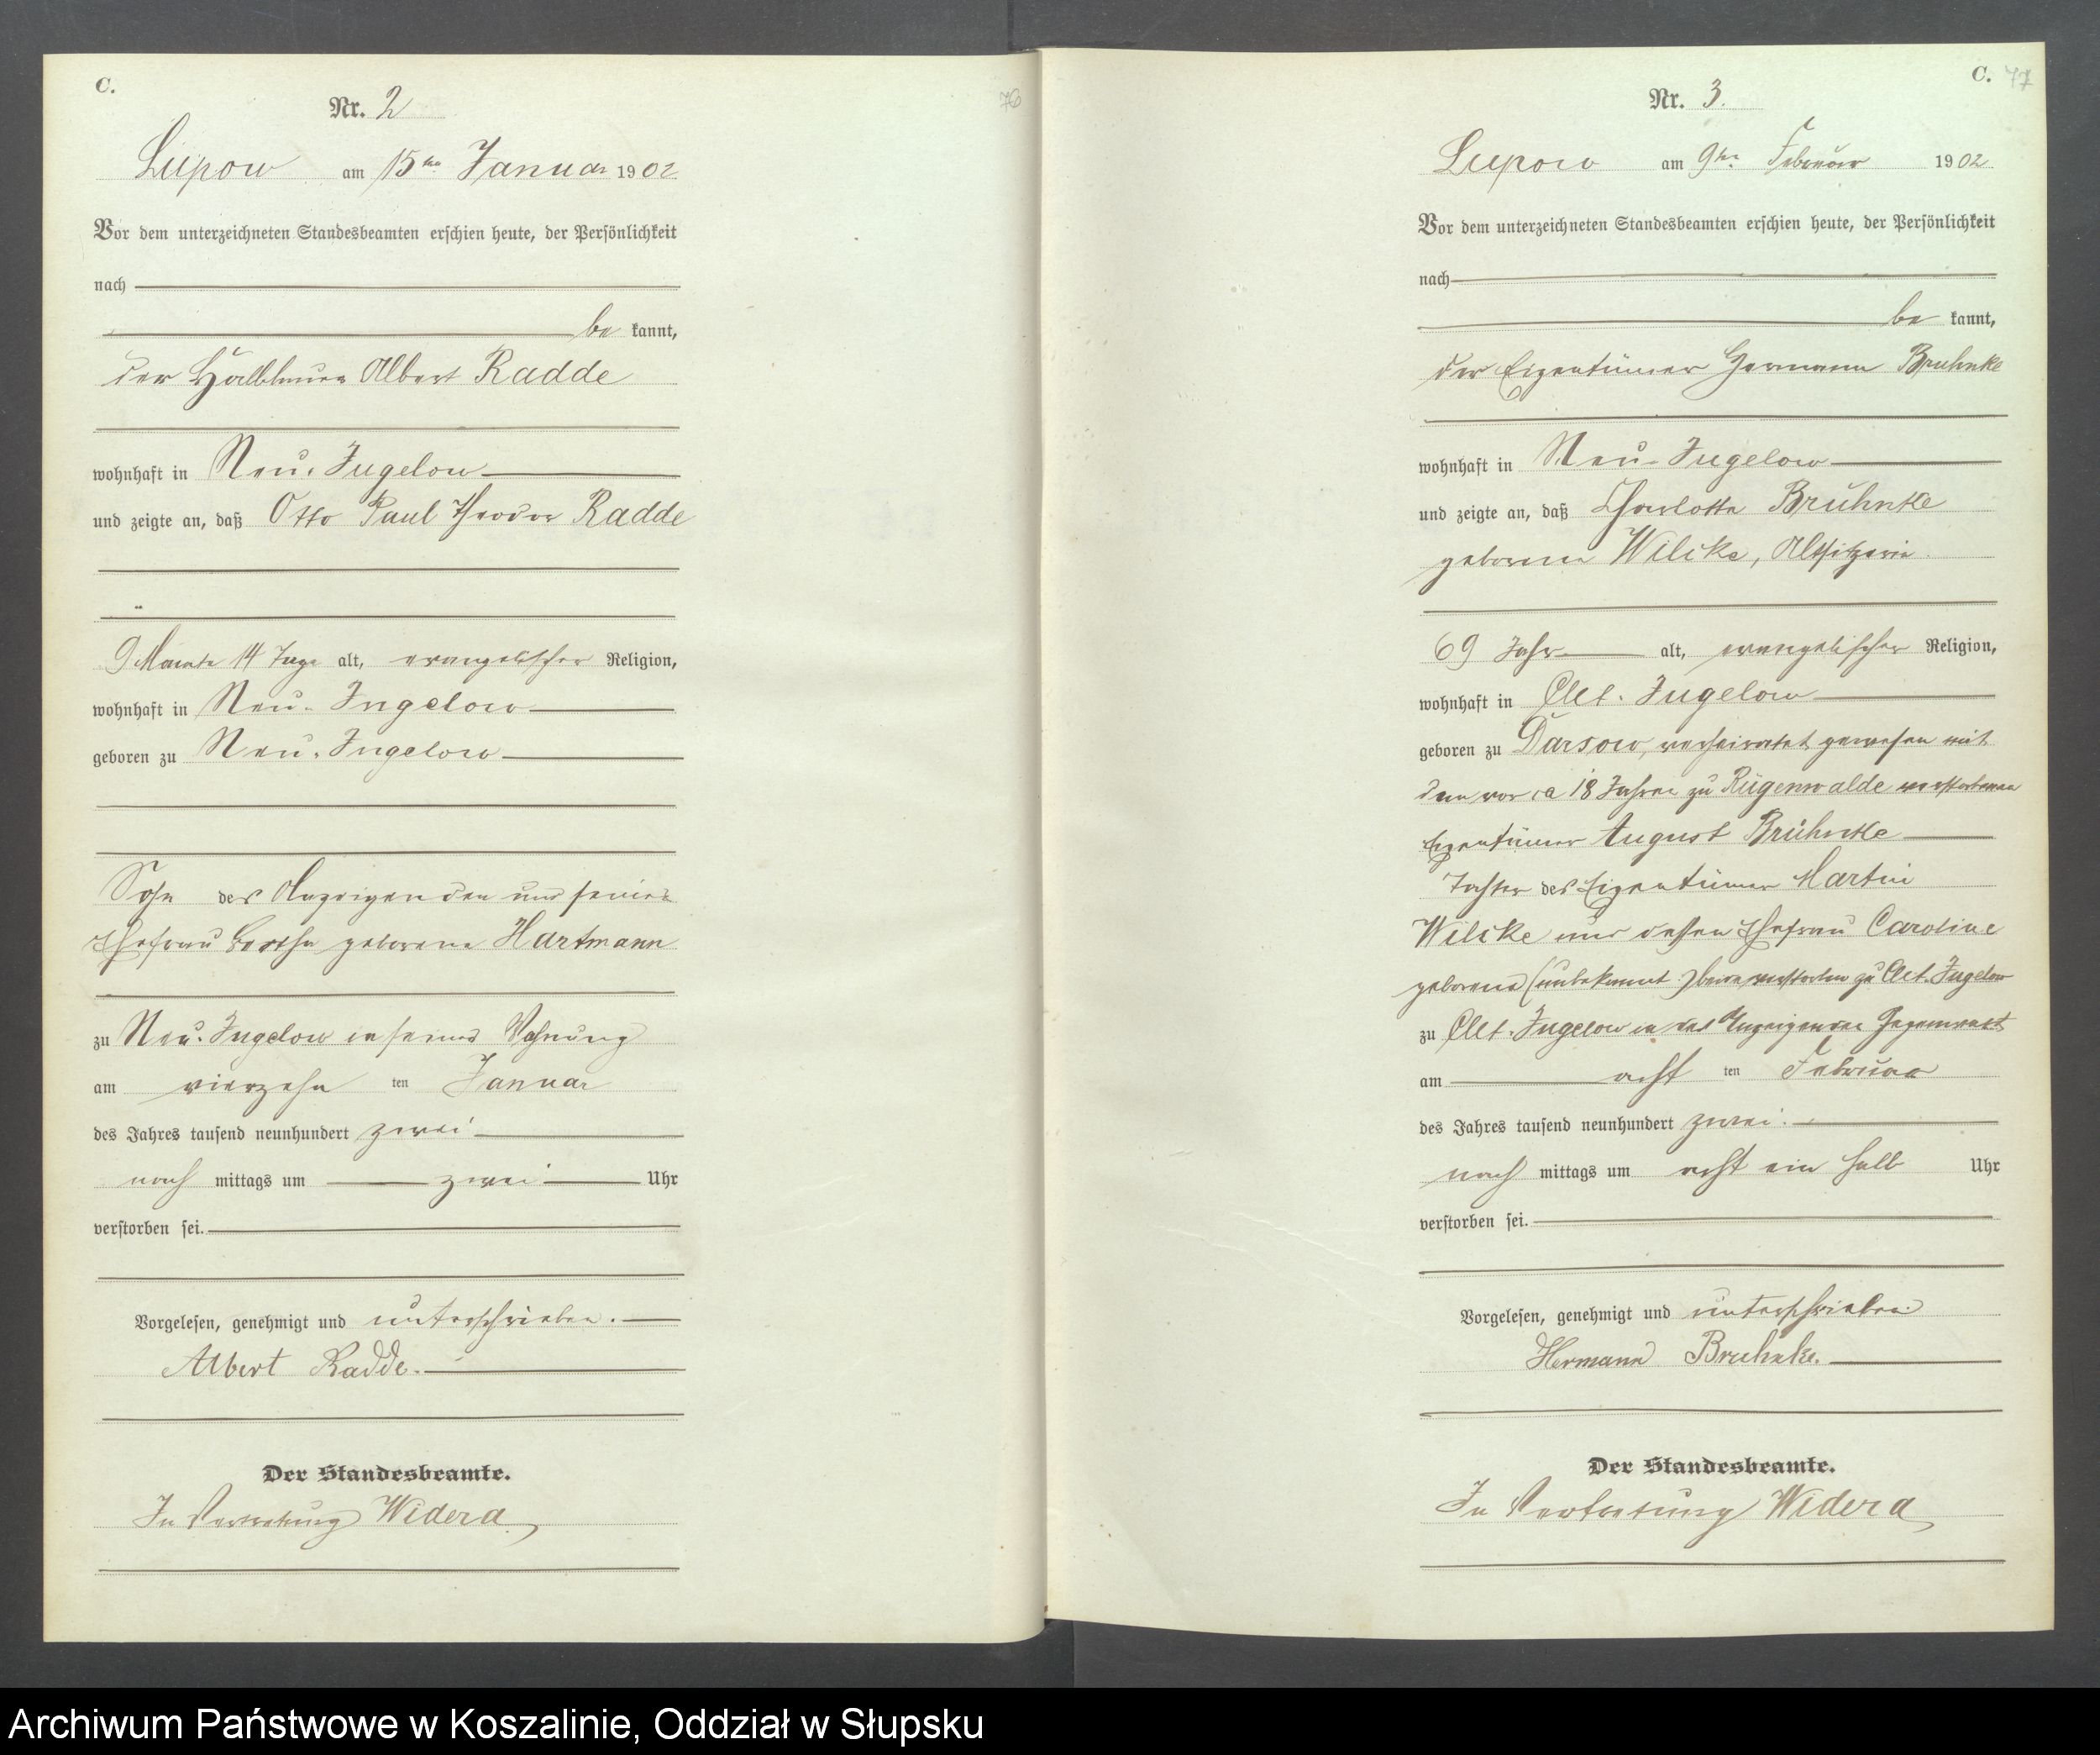 C.
Nr. 2
76
Lupow am 15ten Januar 1902
Vor dem unterzeichneten Standesbeamten erschien heute, der Persönlichkeit
nach
be kannt,
der Halbbauer Albert Radde
wohnhaft in Neu-Jugelow
und zeigte an, daß Otto Paul Theodor Radde
9 Monate 14 Tage alt, evangelischer Religion,
wohnhaft in Neu-Jugelow
geboren zu Neu-Jugelow
Sohn des Anzeigenden und seiner
Ehefrau Bertha geborene Hartmann
zu Neu-Jugelow in seiner Wohnung
am vierzehn ten Januar
des Jahres tausend neunhundert zwei
nach mittags um zwei Uhr
verstorben sei.
Vorgelesen, genehmigt und unterschrieben.
Albert Radde.
Der Standesbeamte.
In Vertretung Widera
C. 77
Nr. 3.
Lupow am 9ten Februar 1902
Vor dem unterzeichneten Standesbeamten erschien heute, der Persönlichkeit
nach
be kannt,
der Eigentümer Hermann Bruhnke
wohnhaft in Neu-Jugelow
und zeigte an, daß Charlotte Brühnke
geborene Wilcke, Altsitzerin
69 Jahr alt, evangelischer Religion,
wohnhaft in Alt-Jugelow
geboren zu Darsow, verheiratet gewesen mit
dem vor ca 18 Jahren zu Rügenwalde verstorbenen
Eigentümer August Brühnke
Tochter des Eigentümer Martin
Wilcke und dessen Ehefrau Caroline
geborene (unbekannt) beide verstorben zu Alt-Jugelow
zu Alt-Jugelow in des Anzeigenden Gegenwart
am acht ten Februar
des Jahres tausend neunhundert zwei.
nach mittags um acht ein halb Uhr
verstorben sei.
Vorgelesen, genehmigt und unterschrieben
Hermann Bruhnke.
Der Standesbeamte.
In Vertretung Widera
Archiwum Państwowe w Koszalinie, Oddział w Słupsku